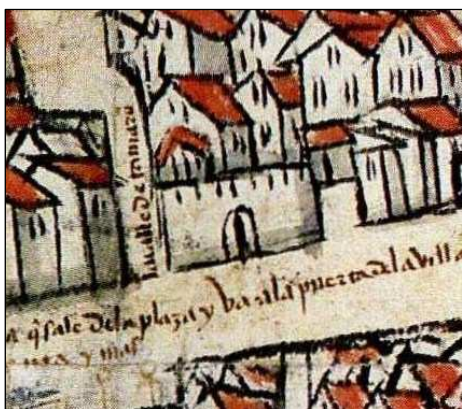 la calle de
q̃ sale de la plaza y ba a la puerta de la villa
y mas